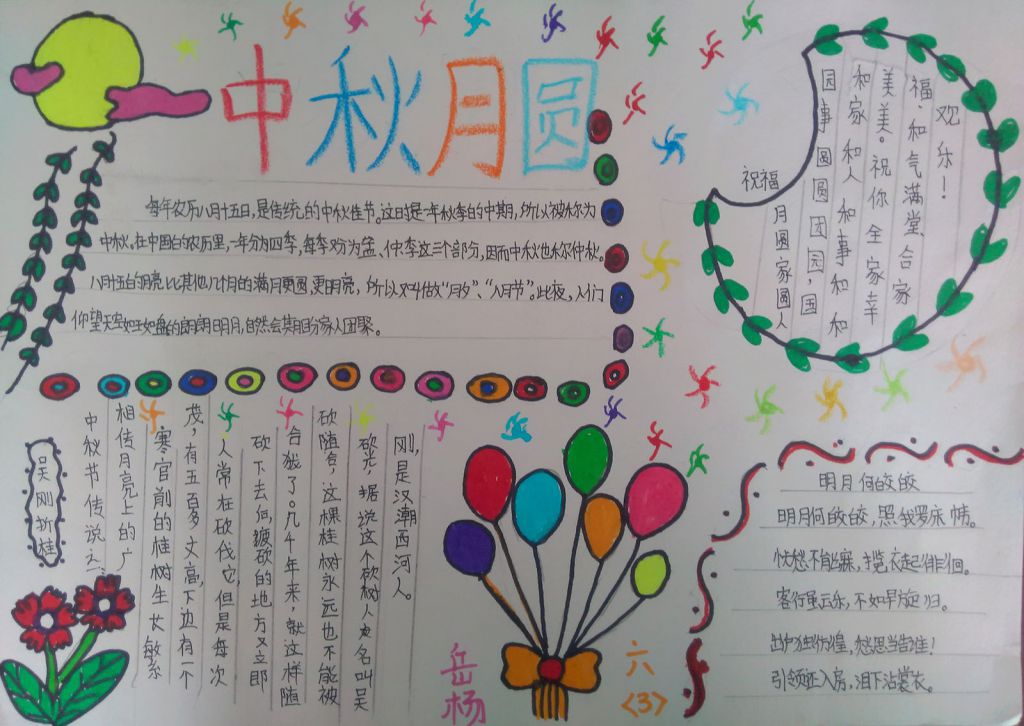 中秋月圆
每年农历八月十五日,是传统的中秋佳节。这时是一年秋季的中期,所以被称为
中秋。在中国的农历里,一年分为四季,每季又分为孟、仲、季这三个部分,因而中秋也称仲秋。
八月十五的月亮比其他几个月的满月更圆,更明亮,所以又叫做“月夕”、“八月节”。此夜,人们
仰望天空如玉如盘的朗朗明月,自然会期盼家人团聚。
祝福
月圆家圆人
园事圆圆团园,国
和家和人和事和和
美美。祝你全家幸
福、和气满堂合家
欢乐!
吴刚折桂
中秋节传说之:
相传月亮上的广
寒宫前的桂树生长繁
茂,有五百多丈高,下边有一个
人常在砍伐它,但是每次
砍下去后,被砍的地方又立即
合拢了。几千年来,就这样随
砍随合,这棵桂树永远也不能被
砍光。据说这个砍树人名叫吴
刚,是汉潮西河人。
岳杨
六<3>
明月何皎皎
明月何皎皎,照我罗床帏。
忧愁不能寐,揽衣起徘徊。
客行虽云乐,不如早旋归。
出户独彷徨,愁思当告谁!
引领还入房,泪下沾裳衣。